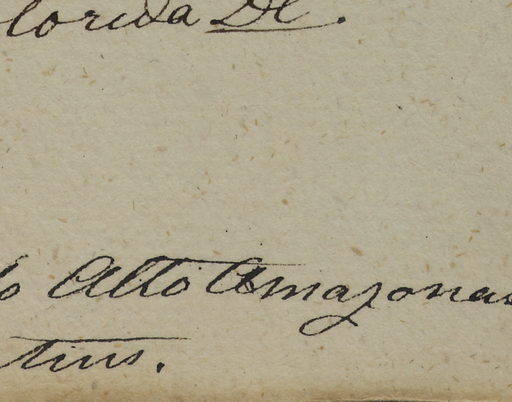 lorida Dl.
do Alto Amazonas
tius.